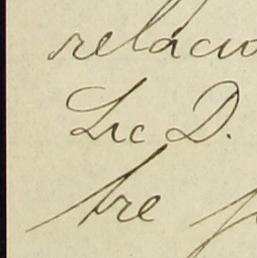 relacio
Lic D.
bre